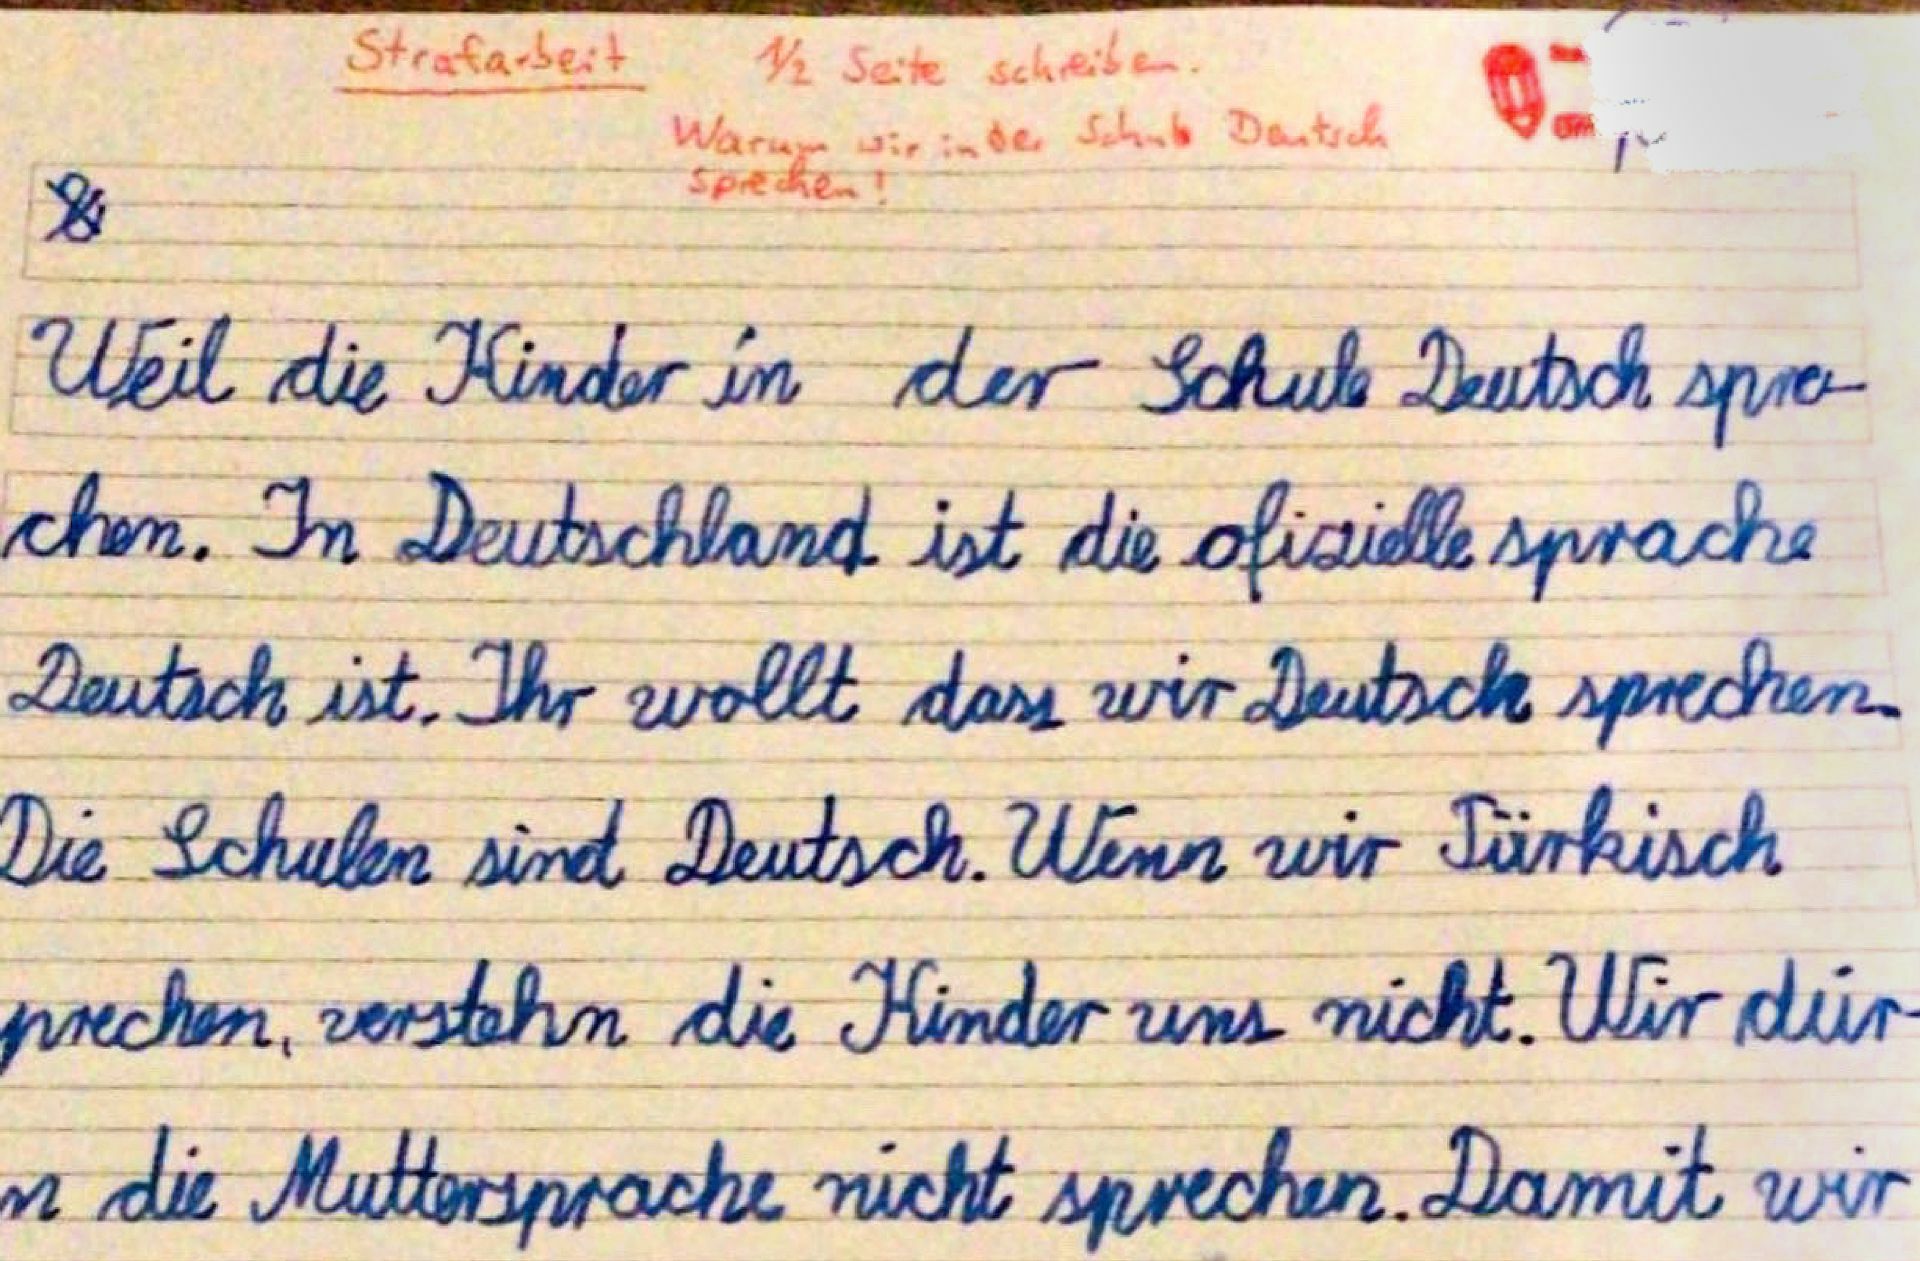 Strafarbeit 1/2 Seite schreiben.
Warum wir in der Schule Deutsch
sprechen!
Weil die Kinder in der Schule Deutsch spre-
chen. In Deutschland ist die ofizielle sprache
Deutsch ist. Ihr wollt dass wir Deutsch sprechen.
Die Schulen sind Deutsch. Wenn wir Türkisch
prechen, verstehn die Kinder uns nicht. Wir dür-
n die Muttersprache nicht sprechen. Damit wir